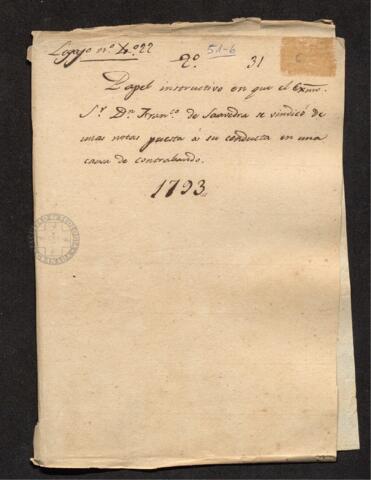 Legajo nº 4º 22
51-6
2º 31
6
Papel instructivo en que el Exmo.
Sr. Dn. Franco. de Saavedra se vindicó de
unas notas puesta á su conducta en una
causa de contrabando.
1793.